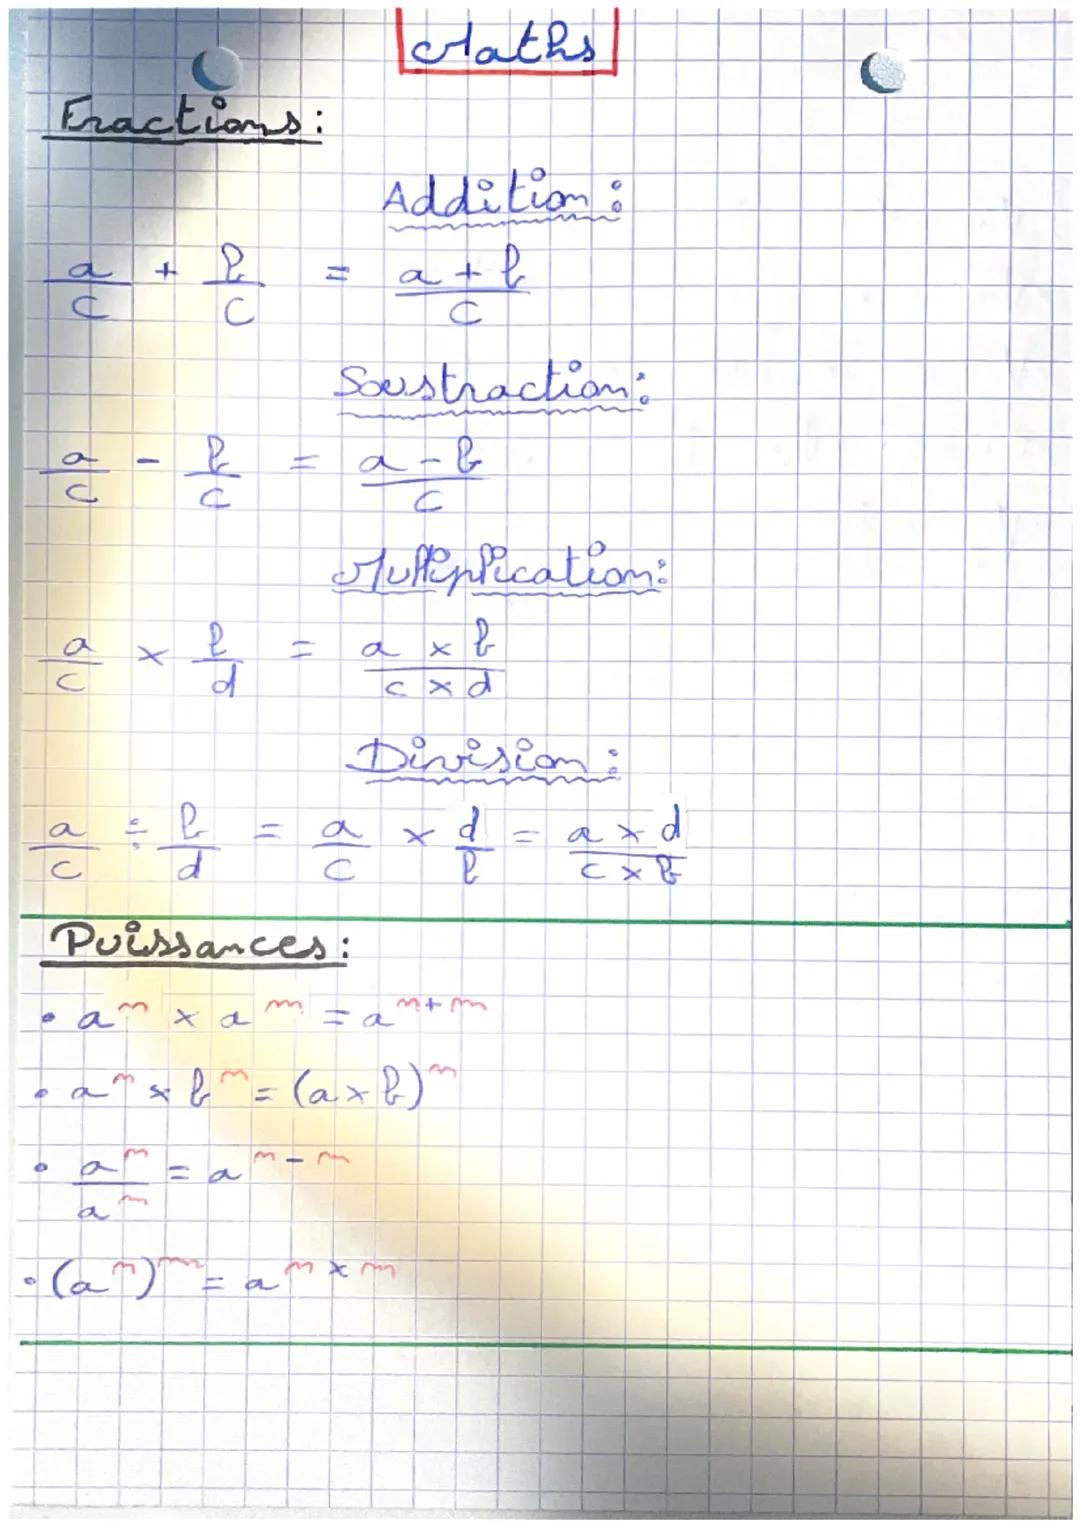 Maths
Fractions :
Addition :
a/c + b/c = a + b/c
Soustraction :
a/c - b/c = a - b/c
Multiplication :
a/c × b/d = a × b/c × d
Division :
a/c ÷ b/d = a/c × d/b = a × d/c × b
Puissances :
• aⁿ × aᵐ = aⁿ⁺ᵐ
• aⁿ × bⁿ = (a × b)ⁿ
• aⁿ/aᵐ = aⁿ⁻ᵐ
• (aⁿ)ᵐ = aⁿ ˣ ᵐ